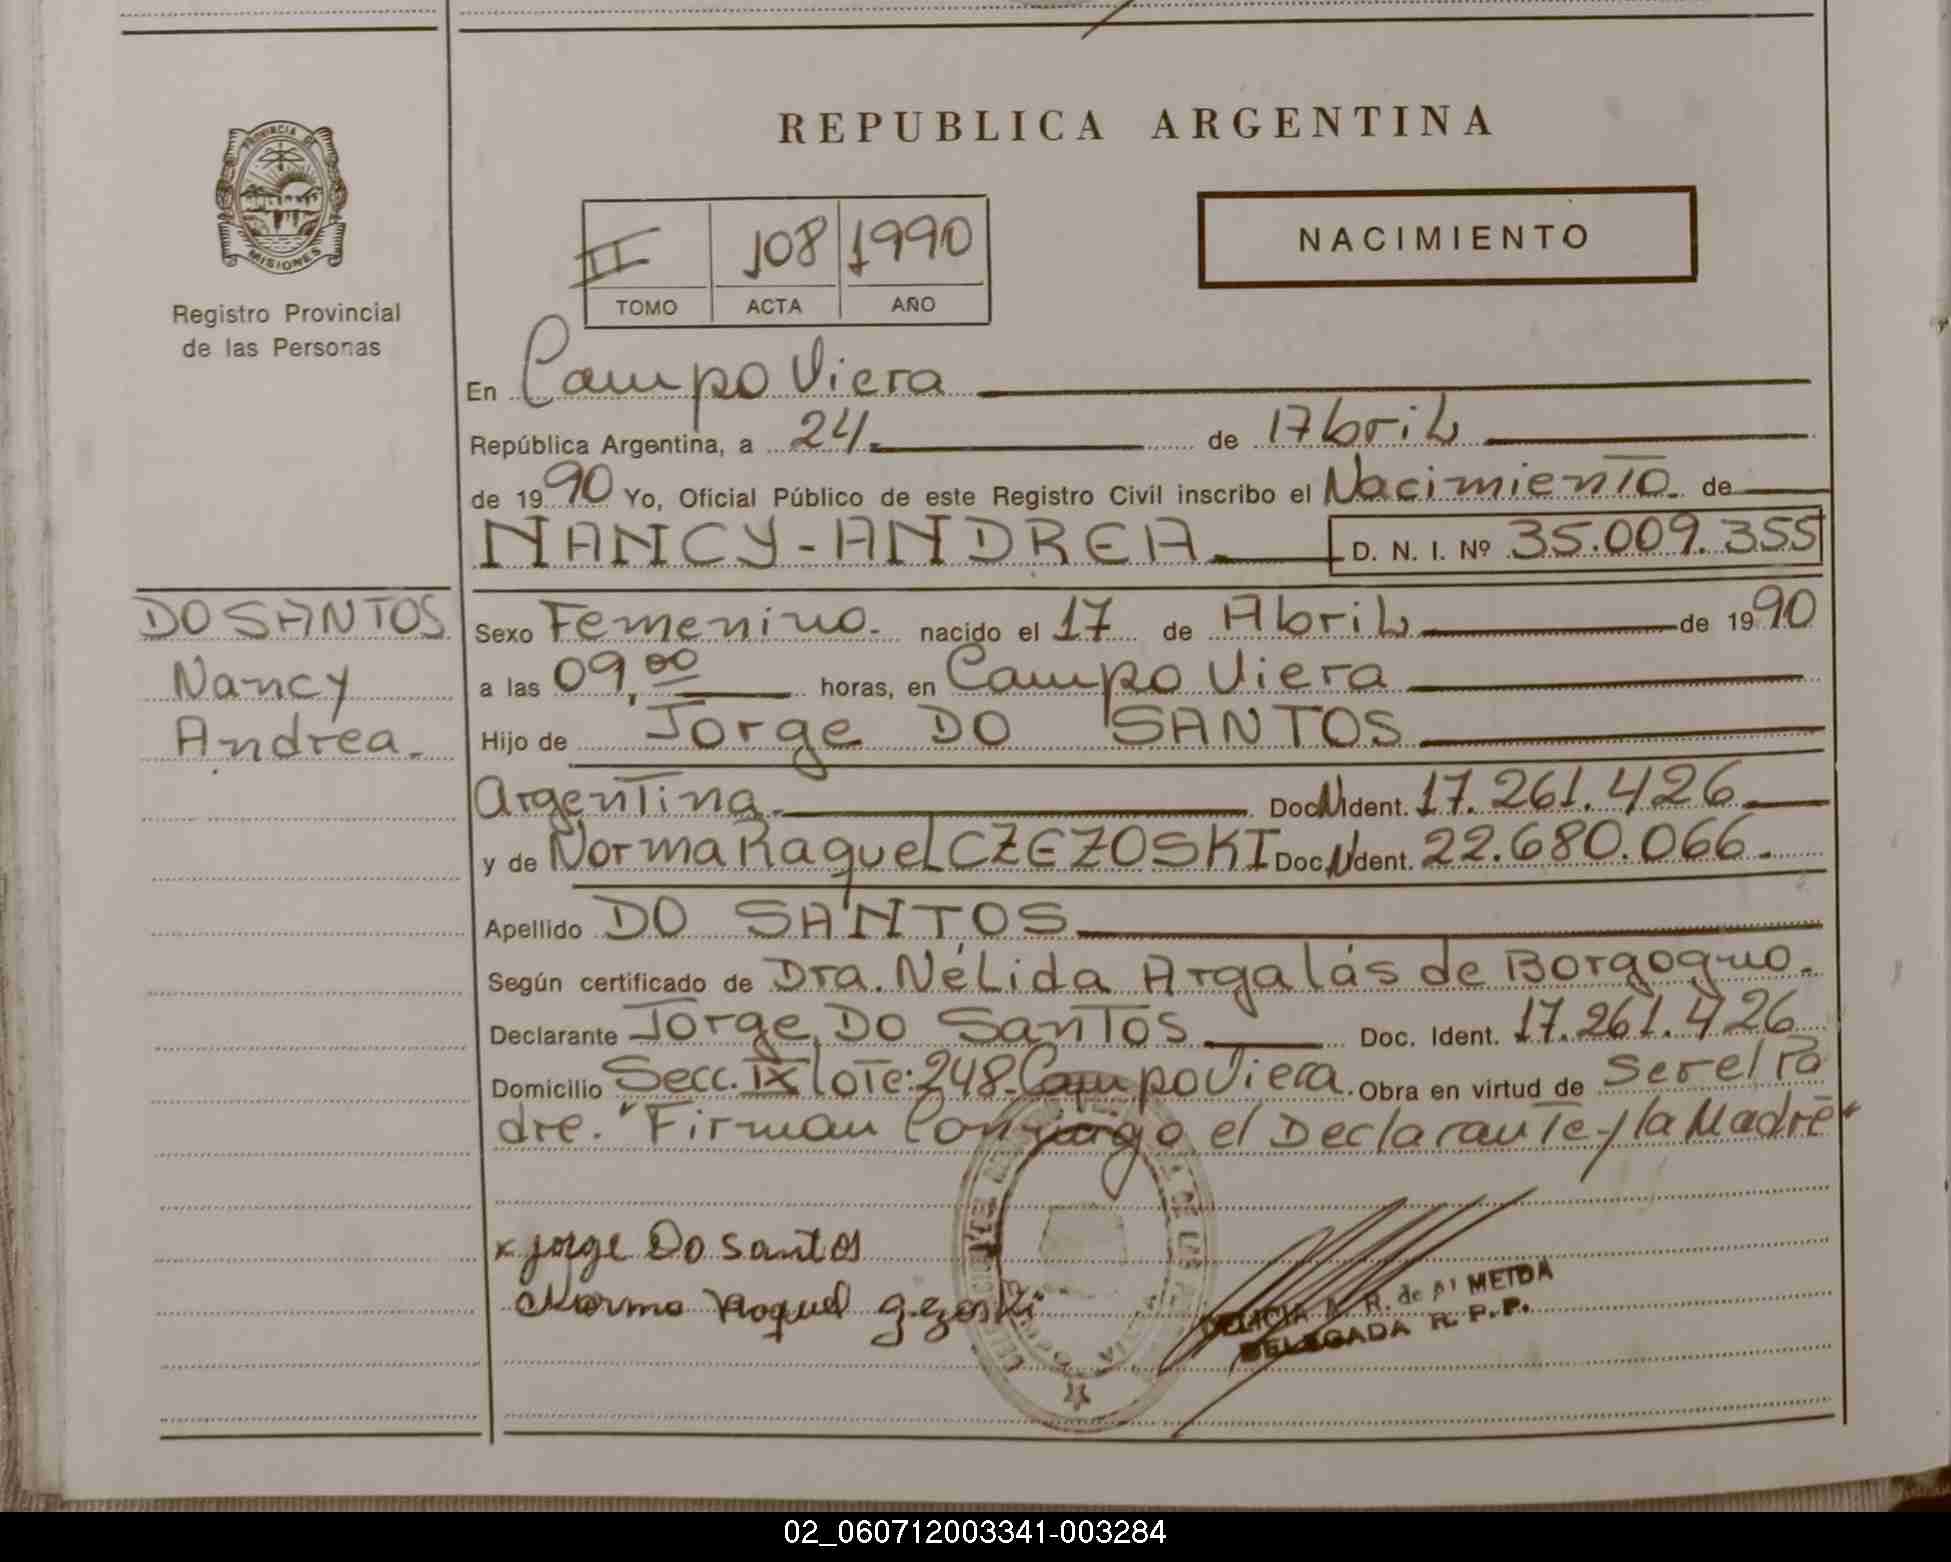 REPUBLICA ARGENTINA
PROVINCIA DE
MISIONES
Registro Provincial
de las Personas
II 108 1990
TOMO ACTA AÑO
NACIMIENTO
En Campo Viera
República Argentina, a 24 de Abril
de 1990 Yo, Oficial Público de este Registro Civil inscribo el Nacimiento de
NANCY-ANDREA D. N. I. Nº 35.009.355
DO SANTOS
Nancy
Andrea.
Sexo Femenino. nacido el 17 de Abril de 1990
a las 09,00 horas, en Campo Viera
Hijo de Jorge DO SANTOS
Argentina. Doc. Ident. 17.261.426
y de Norma Raquel CZEZOSKI Doc. Ident. 22.680.066.
Apellido DO SANTOS
Según certificado de Dra. Nélida Argalás de Borgogno.
Declarante Jorge DO SanTos Doc. Ident. 17.261.426
Domicilio Secc. IX loTe: 248-Campo Viera. Obra en virtud de ser el Pa
dre. "Firman Conmigo el DeclaranTe y la Madre"
x Jorge Do santos
Norma Raquel
DELICIA A. R. de
DELEGADA R. P. P.
02_060712003341-003284